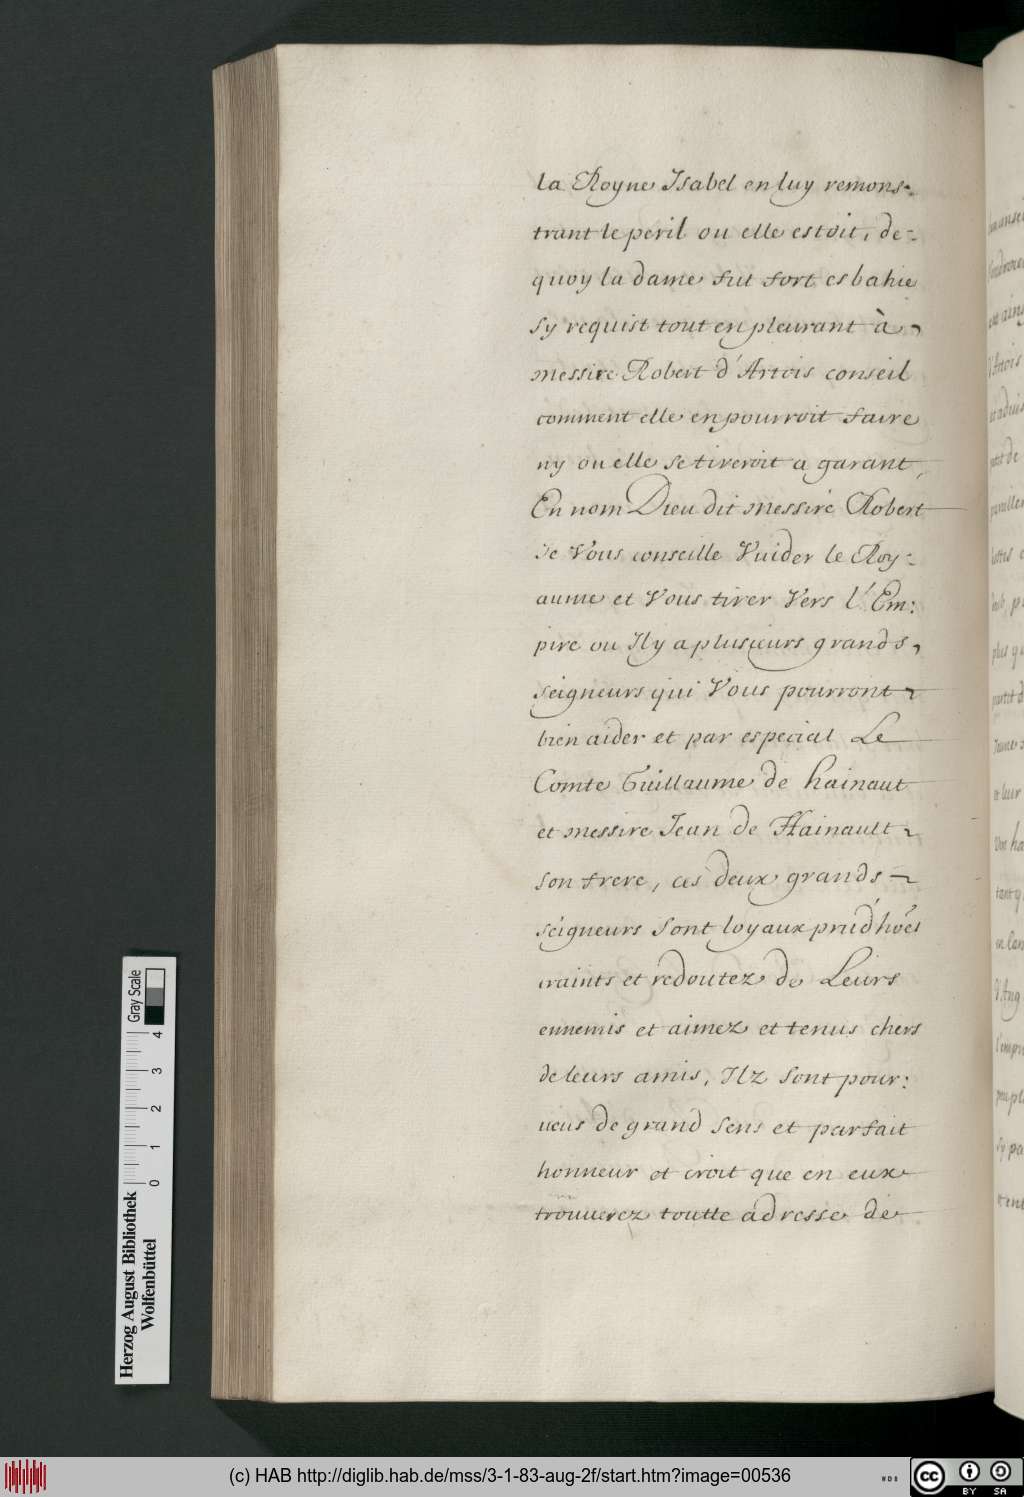 la Royne Isabel en luy remons-
trant le peril ou elle estoit, de-
quoy la dame fut fort esbahie
sy requist tout en pleurant à
messire Robert d'Artois conseil
comment elle en pourroit faire
ny ou elle se tireroit a garant,
En nom Dieu dit messire Robert
Je Vous conseille Vuider le Roy-
aume et Vous tirer Vers l'Em:
pire ou Il y a plusieurs grands
seigneurs qui Vous pourront
bien aider et par especial Le
Comte Guillaume de hainaut
et messire Jean de Hainault
son frere, ces deux grands
seigneurs sont loyaux prud'hões
craints et redoutez de Leurs
ennemis et aimez et tenus chers
de leurs amis, Ilz sont pour:
ueus de grand sens et parfait
honneur et croit que en eux
trouuerez toutte adresse de
Gray Scale
0 1 2 3 4
Herzog August Bibliothek
Wolfenbüttel
(c) HAB http://diglib.hab.de/mss/3-1-83-aug-2f/start.htm?image=00536
cc BY SA